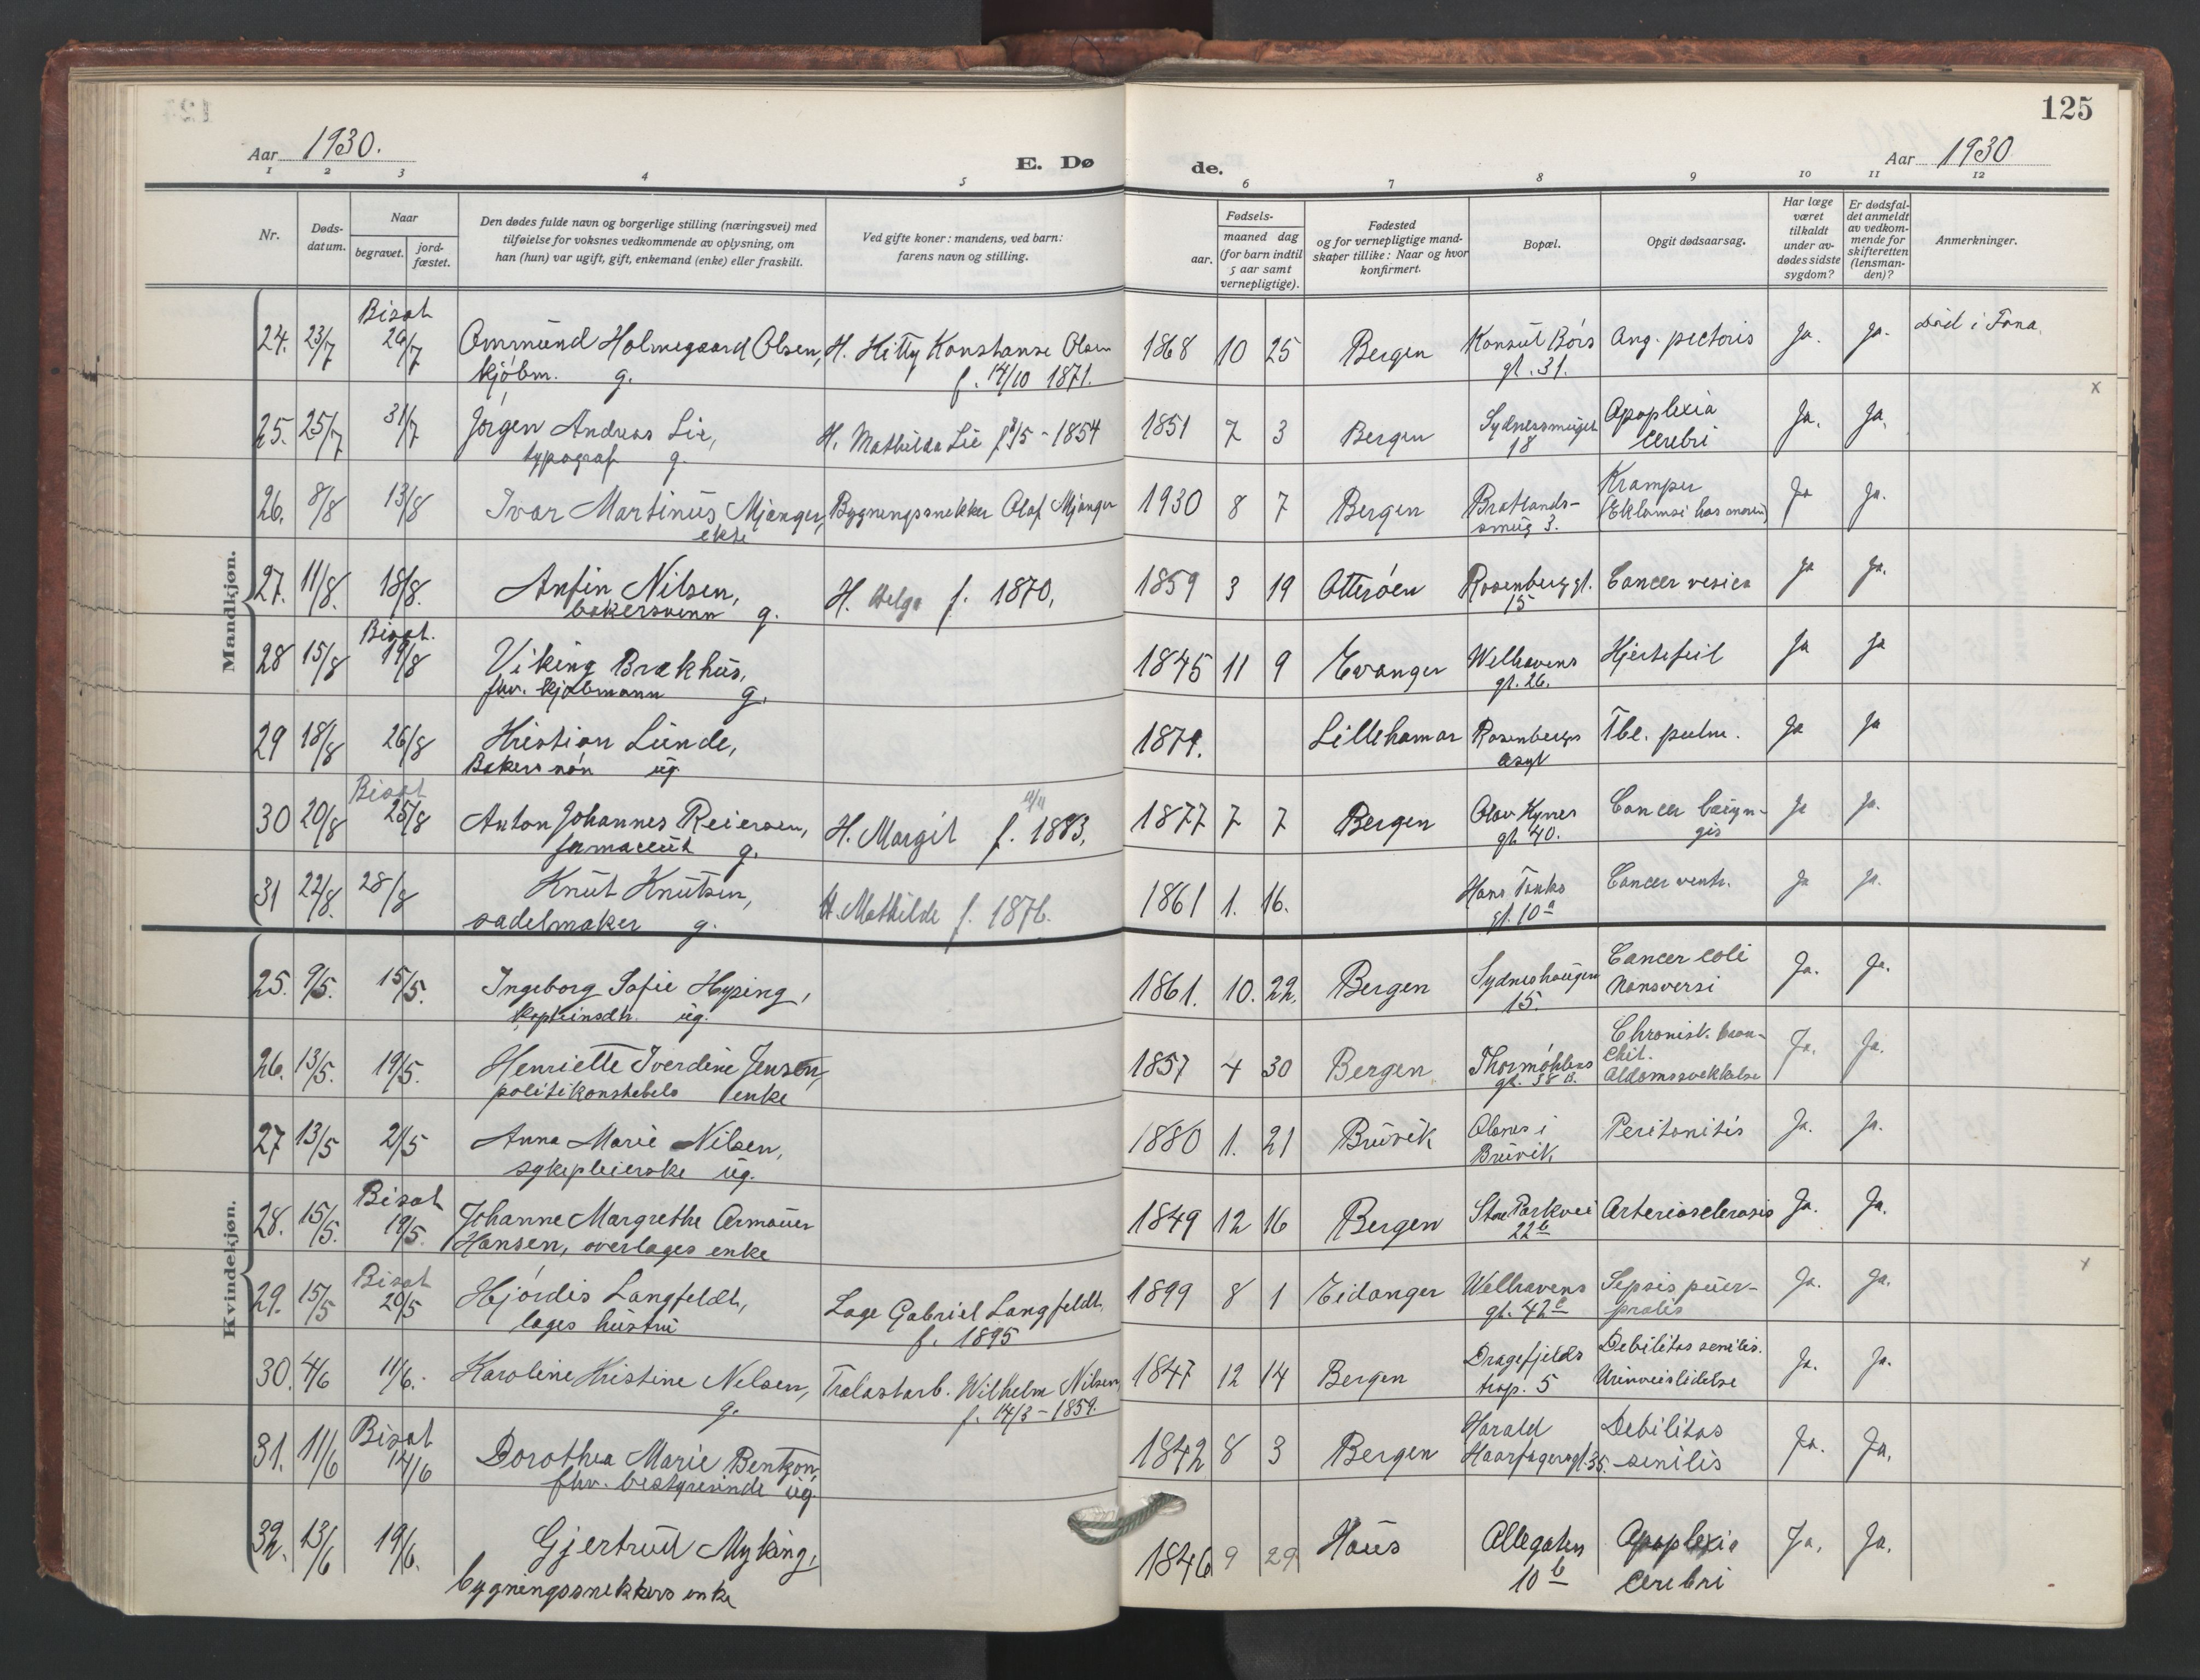 125
Aar 1930.
E. Dø
de.
Aar 1930
1 2 3 4 5 6 7 8 9 10 11 12
Nr.
Døds-
datum.
Naar
begravet.
jord-
fæstet.
Den dødes fulde navn og borgerlige stilling (næringsvei) med
tilføielse for voksnes vedkommende av oplysning, om
han (hun) var ugift, gift, enkemand (enke) eller fraskilt.
Ved gifte koner: mandens, ved barn:
farens navn og stilling.
Fødsels-
aar.
maaned dag
(for barn indtil
5 aar samt
vernepligtige).
Fødested
og for vernepligtige mand-
skaper tillike: Naar og hvor
konfirmert.
Bopæl.
Opgit dødsaarsag.
Har læge
været
tilkaldt
under av-
dødes sidste
sygdom?
Er dødsfal-
det anmeldt
av vedkom-
mende for
skifteretten
(lensman-
den)?
Anmerkninger.
Mandkjøn.
Bisat
24. 23/7 26/7 Ommund Holmegaard Olsen, H. Kitty Konstanse Olsen 1868 10 25 Bergen Konsul Børs Ang. pectoris Ja. Ja. Död i Fana.
kjøbm. g. f. 14/10 1871. gt. 31.
x
25. 25/7 31/7 Jørgen Andreas Lie, H. Mathilda Lie 1854 1851 7 3 Bergen Sydnessmuget Apoplexia Ja. Ja.
typograf g. 18 cerebri
26. 8/8 13/8 Ivar Martinus Mjanger, Bygningssnekker Olaf Mjanger 1930 8 7 Bergen Bratlands- Kramper Ja Ja.
ekte smug 3. (Eklamsi hos moren)
27. 11/8. 18/8. Anfin Nilsen, H. Helga f. 1870, 1859 3 19 Otterøen Rosenberggt. Cancer vesica Ja Ja.
bakersvenn g. 15
Bisat.
28 15/8 19/8 Viking Brækhus, 1845 11 9 Evanger Welhavens Hjertefeil Ja Ja
fhv. kjøbmann g. gt. 26.
29 18/8 26/8 Kristian Lunde, 1879. Lillehamar Rosenbergs Tbc. pulm. Ja Ja
ug. asyl
Bisat
30 20/8 25/8 Anton Johannes Reiersen, H. Margit f. 11/11 1883, 1877 7 7 Bergen Olav Kyrres Cancer laryn- Ja Ja.
farmaceut g. gt. 40. gis
31 22/8. 28/8 Knut Knutsen, H. Mathilde f. 1876. 1861 1. 16. Hans Tanks Cancer ventr. Ja Ja.
sadelmaker g. gt. 10a
Kvindekjøn.
25. 9/5. 15/5. Ingeborg Sofie Hysing, 1861. 10. 22. Bergen Sydneshaugen Cancer coli Ja. Ja.
kapteinsdtr. ug. 15. transversi
26. 13/5. 19/5. Henriette Iverdine Jensen, 1857 4 30 Bergen Thormøhlens Chronisk bron- Ja. Ja.
politikonstabels enke gt. 38 B. chit.
Aldomssvekkelse
27 13/5 21/5 Anna Marie Nilsen, 1880 1. 21 Bruvik Olsnes i Peritonitis Ja. Ja.
sykepleierske ug. Bruvik
Bisat
28. 15/5. 19/5. Johanne Margrethe Armauer 1849 12 16 Bergen Store Parkvei Arteriosclerosis Ja. Ja.
Hansen, overlæges enke 22b
Bisat
29. 15/5 20/5 Hjördis Langfeldt, Læge Gabriel Langfeldt, 1899 8 1 Eidanger Welhavens Sepsis puer- Ja. Ja.
læges hustru f. 1895 gt. 42c pralis
30. 4/6 11/6. Karoline Kristine Nelsen, Trælastarb. Wilhelm Nilsen, 1847 12 14 Bergen Dragefjelds Debilitas senilis. Ja. Ja.
g. f. 14/3 - 1859. trap. 5 Urinveislidelse
Bisat
31. 11/6 14/6 Dorothea Marie Bentzon, 1842 8 3 Bergen Harald Debilitas Ja. Ja.
fhv. bestyrerinde ug. Haarfagersgt. 35. senilis
32. 13/6 19/6. Gjertrud Myking, 1846 9 29 Haus Allegaten Apoplexia Ja. Ja.
bygningssnekkers enke 10b cerebri